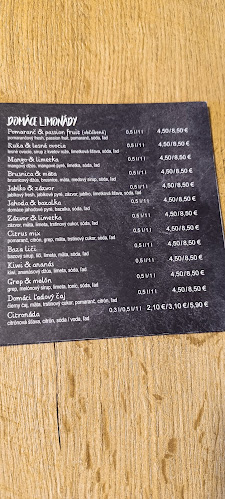 DOMÁCE LIMONÁDY
Pomaranč & passion fruit (obľúbená) 0,5 l/1 l 4,50/8,50 €
pomarančový fresh, passion fruit, pomaranč, sóda, ľad
Ruža & lesné ovocie 0,5 l/1 l 4,50/8,50 €
lesné ovocie, sirup z kvetov ruže, limetková šťava, sóda, ľad
Mango & limetka 0,5 l/1 l 4,50/8,50 €
mangový džús, mangové pyré, limetka, sóda, ľad
Brusnica & mäta 0,5 l/1 l 4,50/8,50 €
brusnicový džús, brusnice, mäta, medový sirup, sóda, ľad
Jablko & zázvor 0,5 l/1 l 4,50/8,50 €
jablkový fresh, jablkové pyré, zázvor, jablko, limetková šťava, sóda, ľad
Jahoda & bazalka 0,5 l/1 l 4,50/8,50 €
domáce jahodové pyré, bazalka, sóda, ľad
Zázvor & limetka 0,5 l/1 l 4,50/8,50 €
zázvor, mäta, limeta, trstinový cukor, sóda, ľad
Citrus mix 0,5 l/1 l 4,50/8,50 €
pomaranč, citrón, grep, mäta, trstinový cukor, sóda, ľad
Baza liči 0,5 l/1 l 4,50/8,50 €
bazový sirup, liči, limeta, mäta, sóda, ľad
Kiwi & ananás 0,5 l/1 l 4,50/8,50 €
kiwi, ananásový džús, limeta, mäta, sóda, ľad
Grep & melón 0,5 l/1 l 4,50/8,50 €
grep, melónový sirup, limeta, tonic, sóda, ľad
Domáci ľadový čaj 0,5 l/1 l 4,50/8,50 €
čierny čaj, mäta, trstinový cukor, pomaranč, citrón, ľad
Citronáda 0,3 l/0,5 l/1 l 2,10 €/3,10 €/5,90 €
citrónová šťava, citrón, sóda / voda, ľad